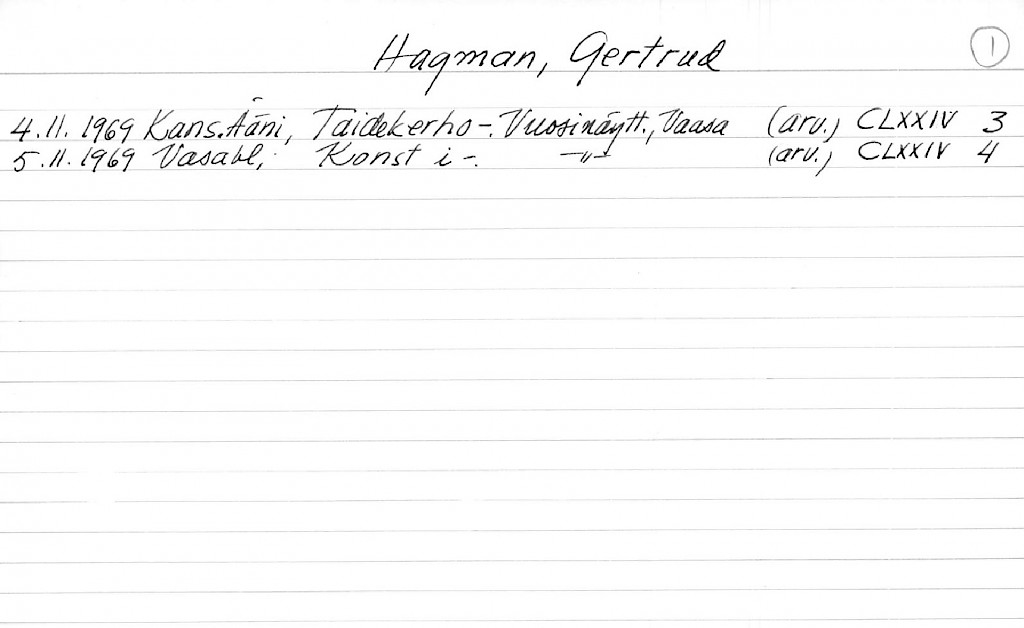 Hagman, Gertrud 1
4.11. 1969 Kans.Ääni, Taidekerho -. Vuosinäytt., Vaasa (arv.) CLXXIV 3
5.11. 1969 Vasabl, Konst i -. -"- (arv.) CLXXIV 4